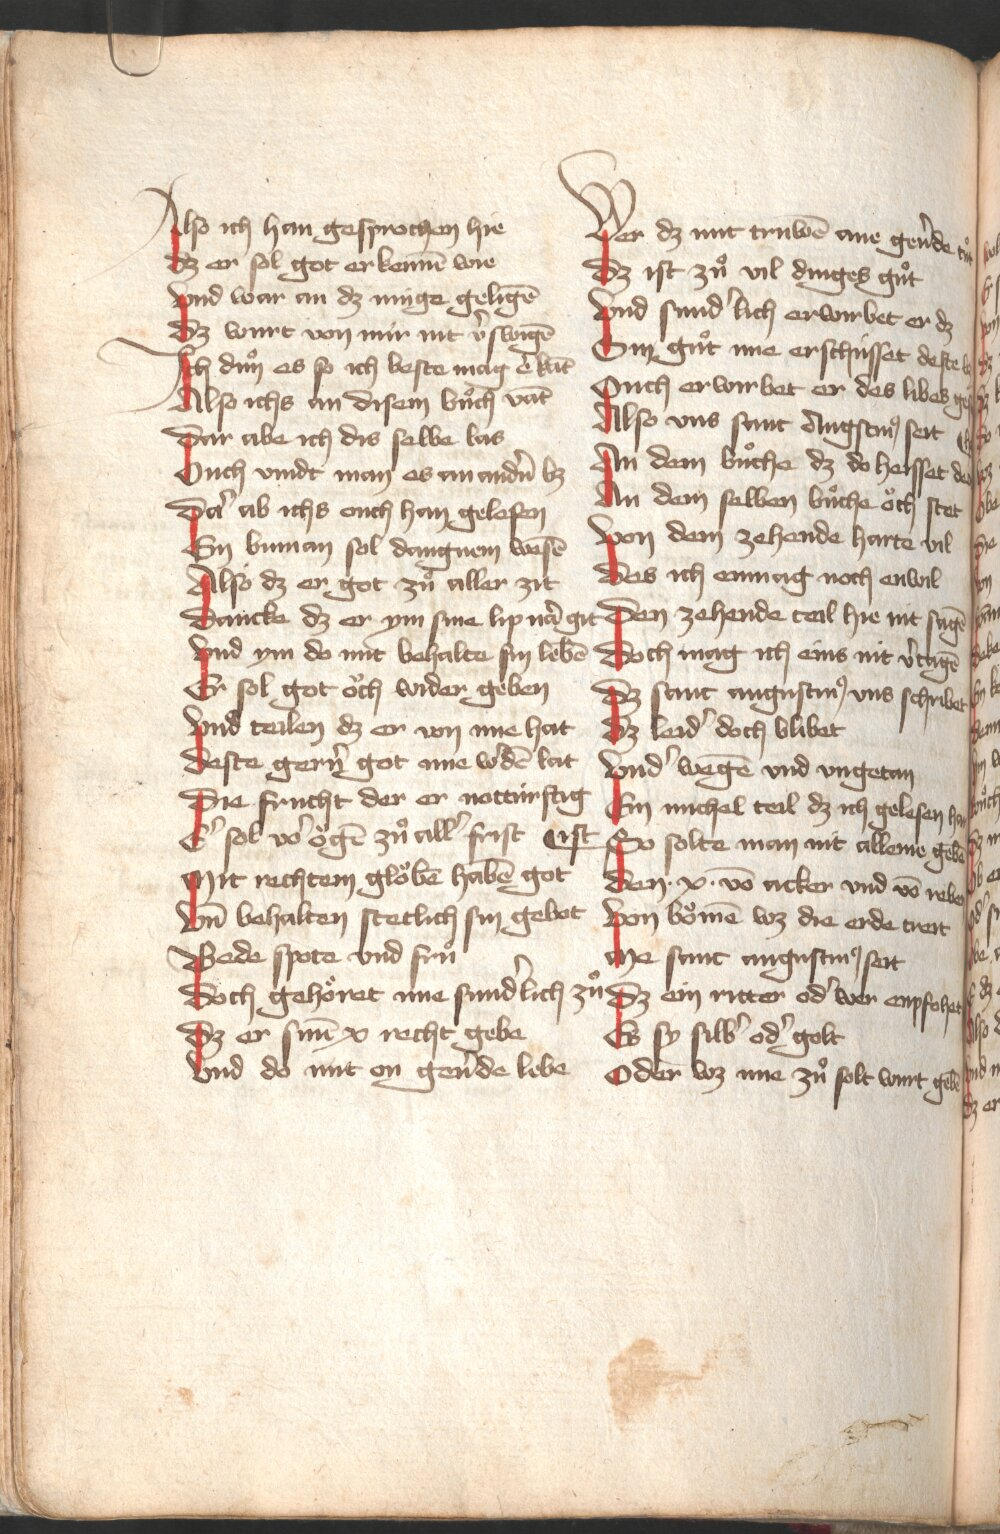 Also ich han gesprochen hie
dz er sol got erkennē wie
Vnd war an dz minge geligē
dz wurt von mir nit v̓swigē
Ich důn es so ich beste mag
Also ichs an disem bůch vāt
Dar abe ich dis selbe las
Ouch vindt man es an andn̄
Da᷑ ab ichs ouch han gelesen
Ein buman sol wesē
Also dz er got zů aller zit
Dancke dz er ym sine lip nar̄ git
Vnd ym do mit behalte sin lebē
Er sol got o̊ch wider geben
Vnd teilen dz er von ime hat
Deste gern̓ got ime w̓dē lat
Die frucht der er notturftig
E᷑ sol vo᷑ ȯgē zů all᷑ frist ist
Mit rechtem glȯbē habē got
Vn̄ behalten stetlich sin gebot
Bede spote vnd frů
Doch gehȯret ime sund᷑lich zů
Dz er sinē x recht gebe
Vnd do mit on geu̓de lebe
Wer dz mit truwē ane geu̓de tůt
Dz ist zů vil dinges gůt
Vnd sund᷑lich erwirbet er dz
Sin gůt ime erschusset deste
Ouch erwirbet er des libes
Also vns sant Augstin9 seit
An dem bůche dz do heisset
An dem selben bůche o̊ch stet
Von dem zehende harte vil
Des ich enmag noch enwil
Den zehende teil hie nit sagē
Doch mag ich eins nit v̓tagē
Dz sant augustin9 vns schribet
Dz leid᷑ doch blibet
Vnd᷑ wegē vnd vngetan
Ein michel teil dz ich gelesen han
So solte man nit alleine gebē
Den · x · vō acker vnd vō reben
Von bȯmē wz die erde treit
Me sant augustin9 seit
Dz ein ritter od᷑ wer enpfohet
Es sy silb᷑ od᷑ golt
Oder wz ime zů solt wurt gebē